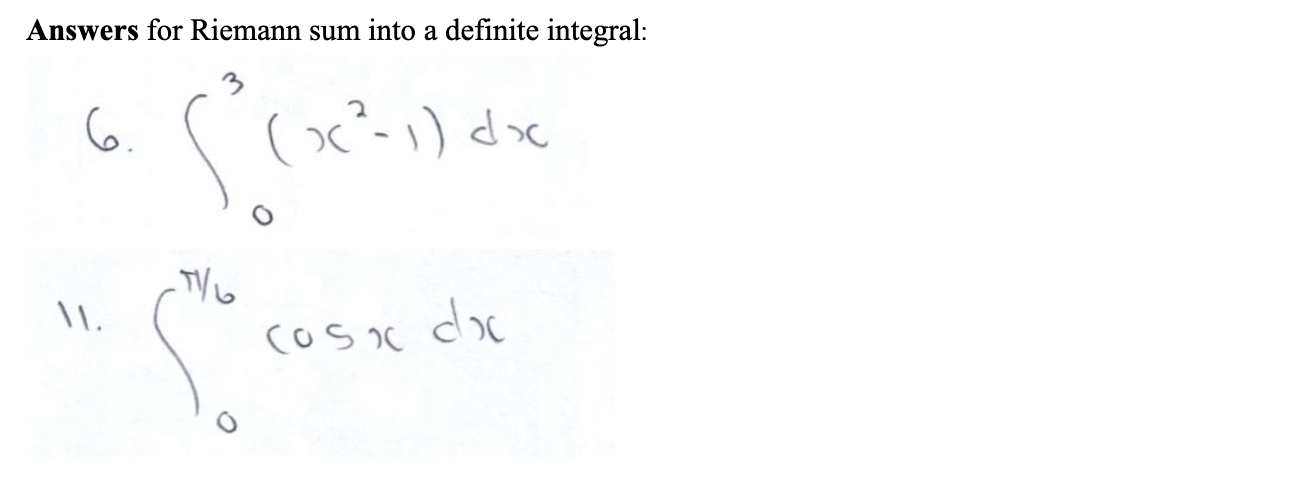 Answers for Riemann sum into a definite integral:
6. ∫₀³ (x²-1) dx
11. ∫₀^π/6 cosx dx